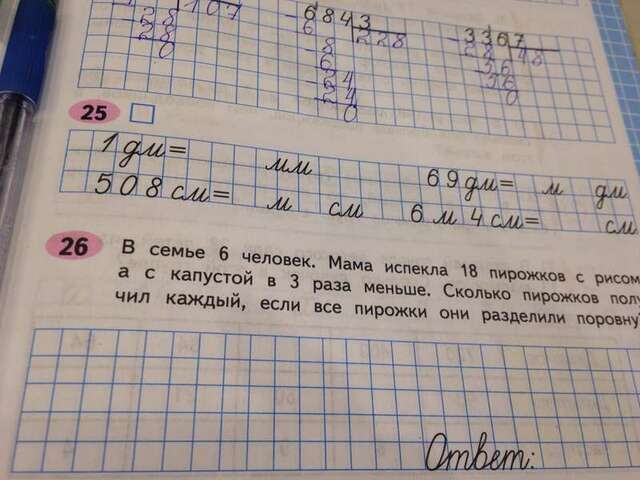 28 107
28
0
684 3
6 228
8
6
24
24
0
336 7
28 48
56
56
0
25
1 дм = мм
69 дм = м дм
508 см = м см
6 м 4 см = см
26
В семье 6 человек. Мама испекла 18 пирожков с рисом
а с капустой в 3 раза меньше. Сколько пирожков полу
чил каждый, если все пирожки они разделили поровну
Ответ: